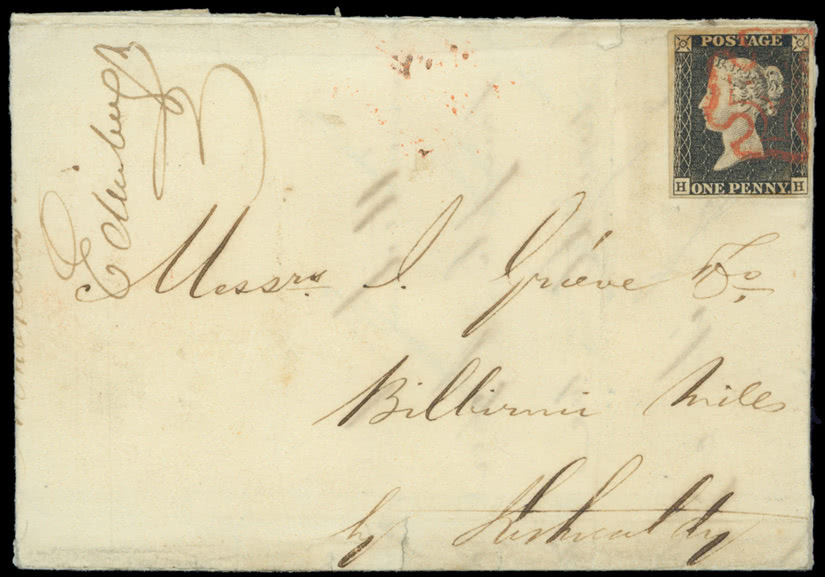 POSTAGE
H ONE PENNY H
Edinburgh
Messrs J. Grieve & Co.
Balbirnie Mills
by Kirkcaldy